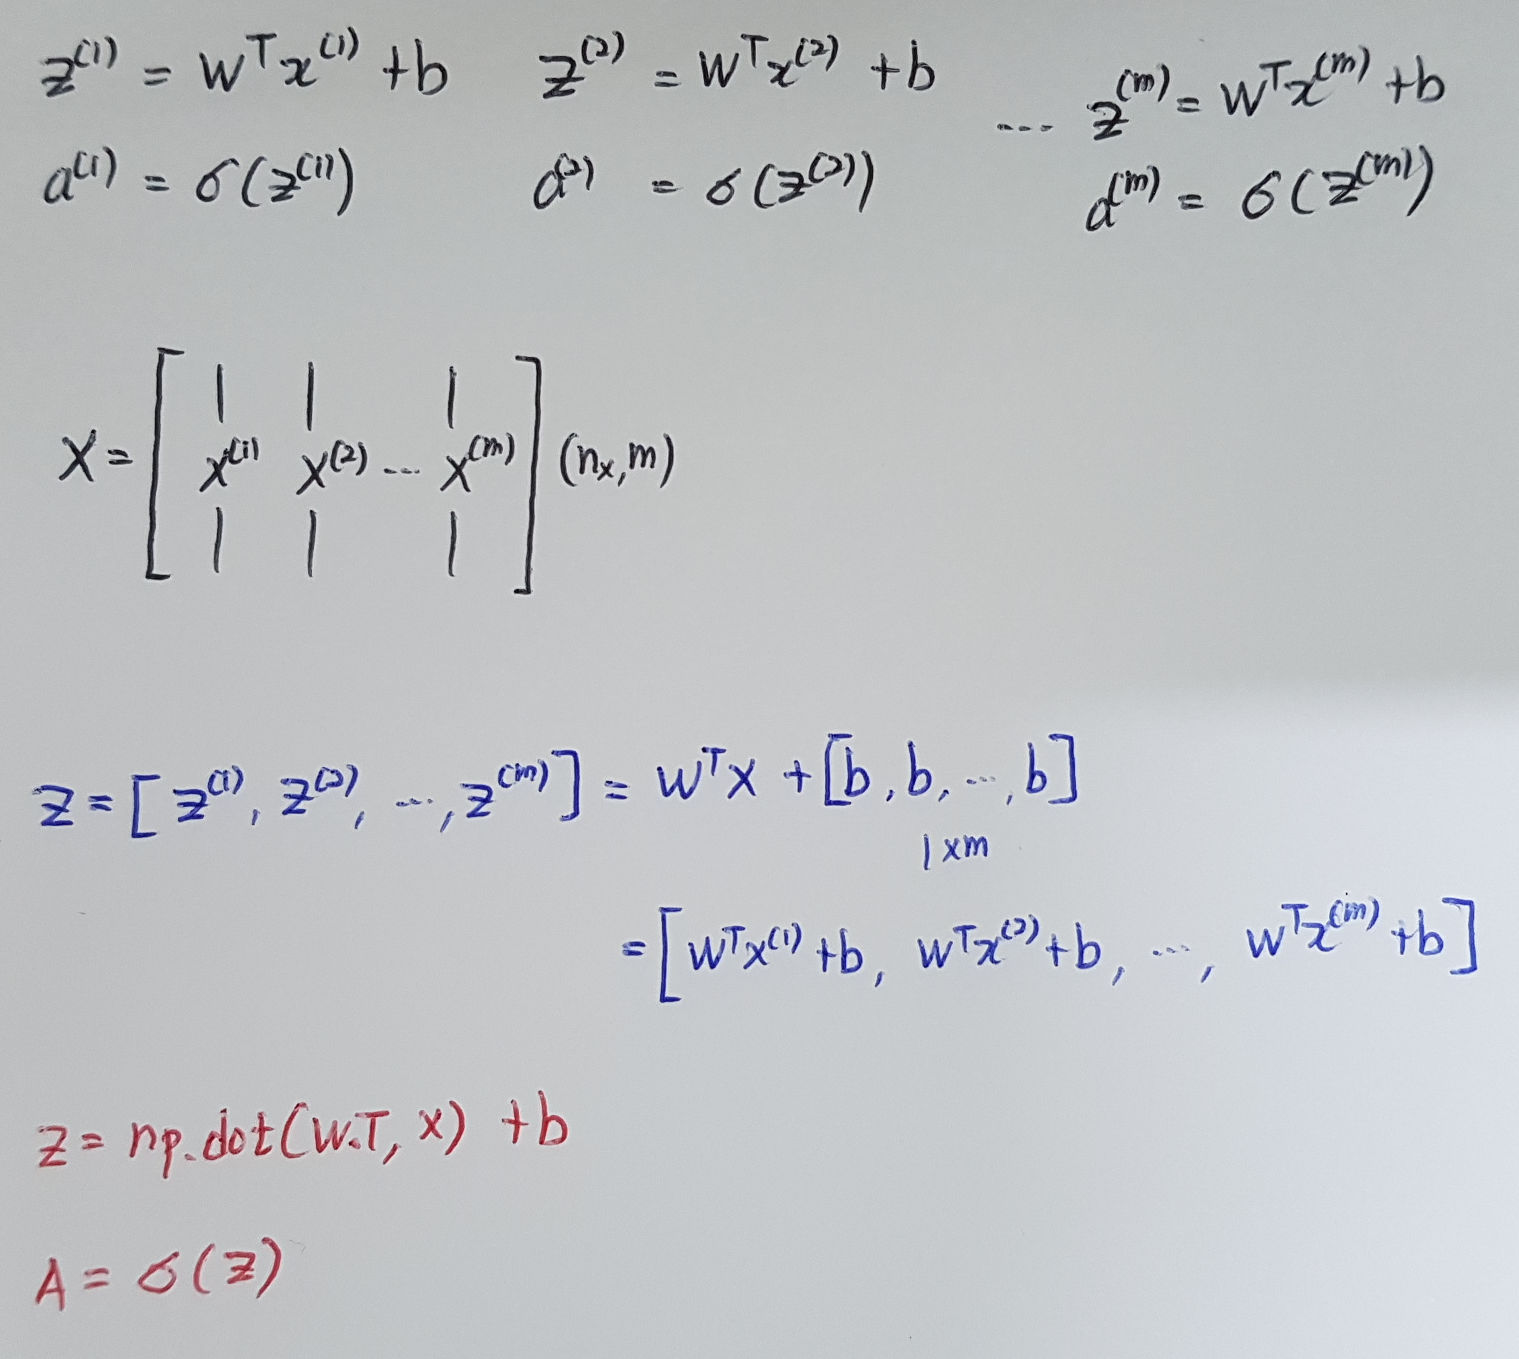 z⁽¹⁾ = wᵀx⁽¹⁾ + b   z⁽²⁾ = wᵀx⁽²⁾ + b   ...   z⁽ᵐ⁾ = wᵀx⁽ᵐ⁾ + b
a⁽¹⁾ = σ(z⁽¹⁾)   a⁽²⁾ = σ(z⁽²⁾)   a⁽ᵐ⁾ = σ(z⁽ᵐ⁾)
X = [ x⁽¹⁾ x⁽²⁾ ... x⁽ᵐ⁾ ] (nₓ, m)
Z = [z⁽¹⁾, z⁽²⁾, ..., z⁽ᵐ⁾] = wᵀX + [b, b, ..., b]
1 x m
= [wᵀx⁽¹⁾ + b, wᵀx⁽²⁾ + b, ..., wᵀx⁽ᵐ⁾ + b]
Z = np.dot(w.T, X) + b
A = σ(Z)